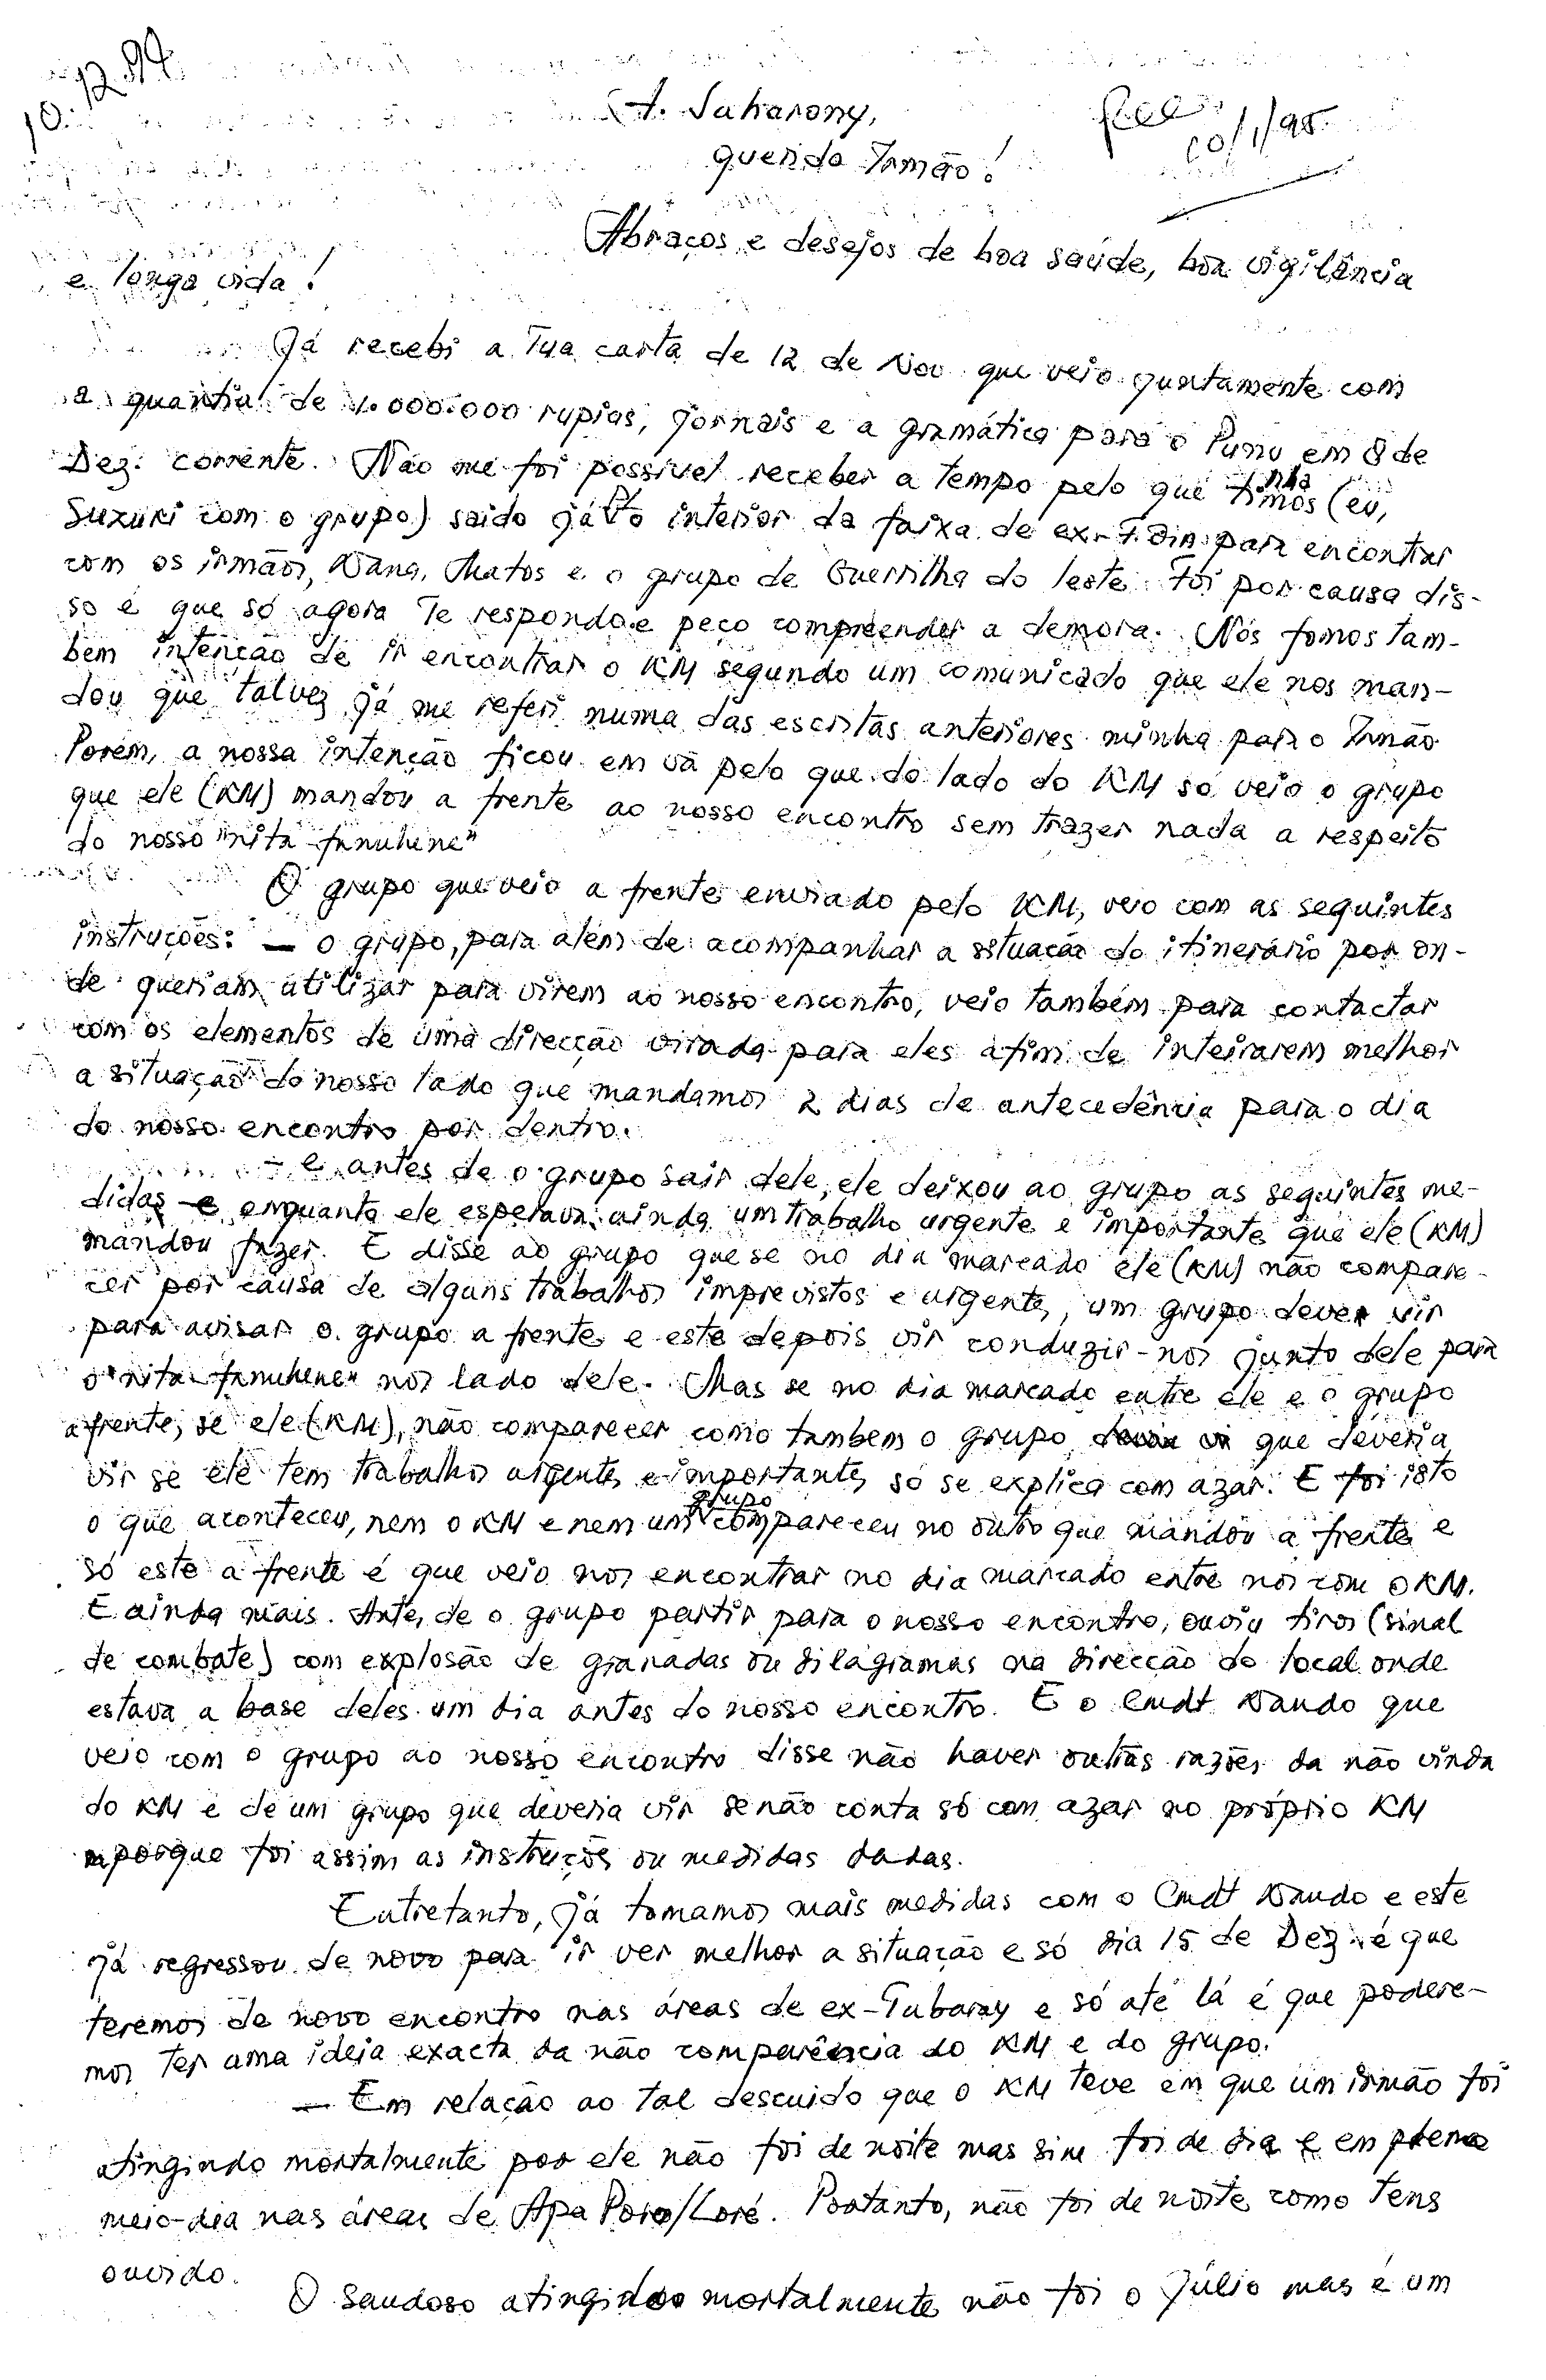 10.12.94
A. Saharony,
Rec 10/1/95
querido Irmão!
Abraços e desejos de boa saúde, boa vigilância
e longa vida!
Já recebi a Tua carta de 12 de Nov que veio juntamente com
a quantia de 1.000.000 rupias, jornais e a gramática para o Puno em 8 de
Dez. corrente. Não me foi possível receber a tempo pelo que tinha (eu,
Suzuki com o grupo) saido já p/o interior da faixa de ex-F. Din para encontrar
com os irmãos, Wana, Matos e o grupo de Guerrilha do leste. Foi por causa dis-
so é que só agora Te respondo e peço compreender a demora. Nós fomos tam-
bém intenção de ir encontrar o KM segundo um comunicado que ele nos man-
dou que talvez já me referi numa das escritas anteriores minha para o Irmão.
Porém, a nossa intenção ficou em vã pelo que do lado do KM só veio o grupo
que ele (KM) mandou a frente ao nosso encontro sem trazer nada a respeito
do nosso "nita-fanuhene"
O grupo que veio a frente enviado pelo KM, veio com as seguintes
instruções: — o grupo, para além de acompanhar a situação do itinerário por on-
de queriam utilizar para virem ao nosso encontro, veio também para contactar
com os elementos de uma direcção virada para eles afim de inteirarem melhor
a situação do nosso lado que mandamos 2 dias de antecedência para o dia
do nosso encontro por dentro.
- e antes de o grupo sair dele, ele deixou ao grupo as seguintes me-
didas e enquanto ele esperava ainda um trabalho urgente e importante que ele (KM)
mandou fazer. E disse ao grupo que se no dia marcado ele (KM) não compare-
cer por causa de alguns trabalhos imprevistos e urgentes, um grupo dever vir
para avisar o grupo a frente e este depois vir conduzir-nos junto dele para
o "nita-fanuhene" nos lado dele. Mas se no dia marcado entre ele e o grupo
a frente, se ele (KM), não comparecer como tambem o grupo que deveria
vir se ele tem trabalhos urgentes e importantes, só se explica com azar. E foi isto
o que aconteceu, nem o KM e nem um grupo compareceu no outro que mandou a frente e
só este a frente é que veio nos encontrar no dia marcado entre nós com o KM.
E ainda mais. Antes de o grupo partir para o nosso encontro, ouviu tiros (sinal
de combate) com explosão de granadas ou dilagramas na direcção do local onde
estava a base deles um dia antes do nosso encontro. E o Cmdt Wando que
veio com o grupo ao nosso encontro disse não haver outras razões da não vinda
do KM e de um grupo que deveria vir senão conta só com azar no próprio KM
porque foi assim as instruções ou medidas dadas.
Entretanto, já tomamos mais medidas com o Cmdt Wando e este
já regressou de novo para ir ver melhor a situação e só dia 15 de Dez. é que
teremos de novo encontro nas áreas de ex-Tubaray e só até lá é que podere-
mos ter uma ideia exacta da não comparência do KM e do grupo.
— Em relação ao tal descuido que o KM teve em que um irmão foi
atingindo mortalmente por ele não foi de noite mas sim foi de dia e em pleno
meio-dia nas áreas de Apa Poro/Loré. Portanto, não foi de noite como Tens
ouvido.
O saudoso atingindo mortalmente não foi o Júlio mas é um